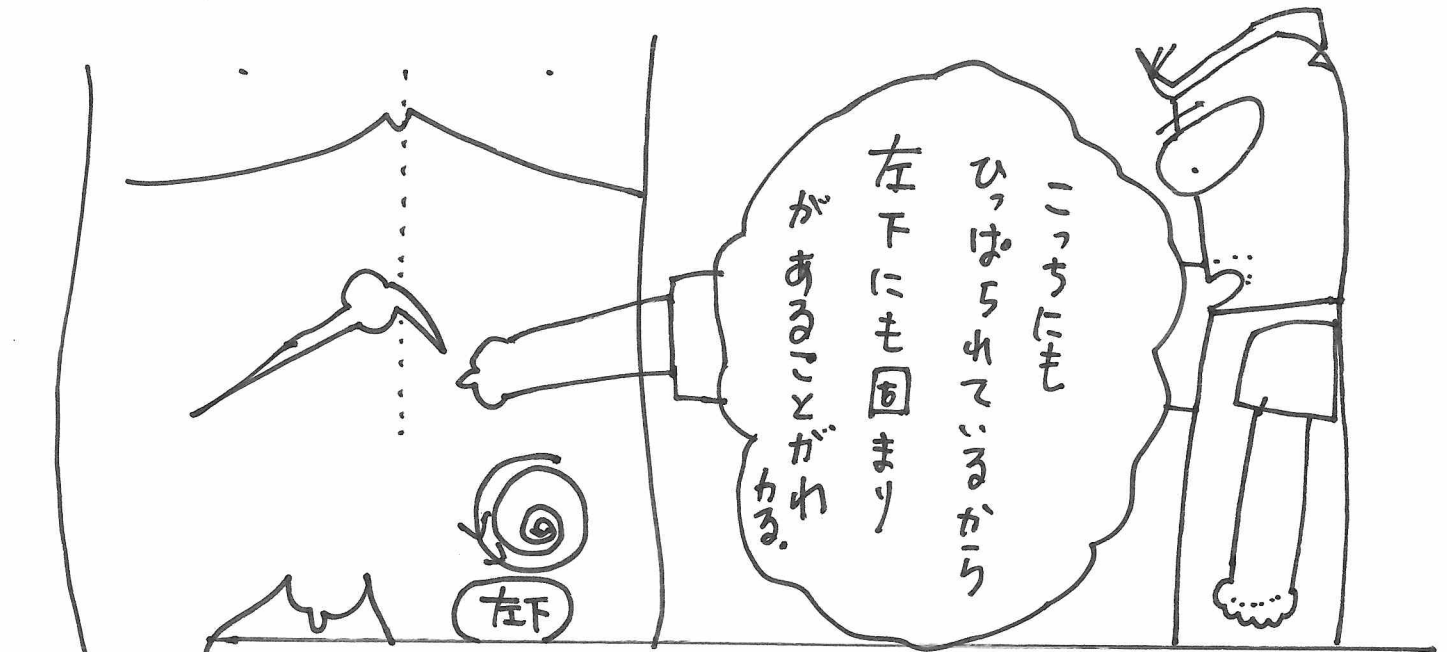 こっちにも
ひっぱられているから
左下にも固まり
があることがわ
かる.
左下